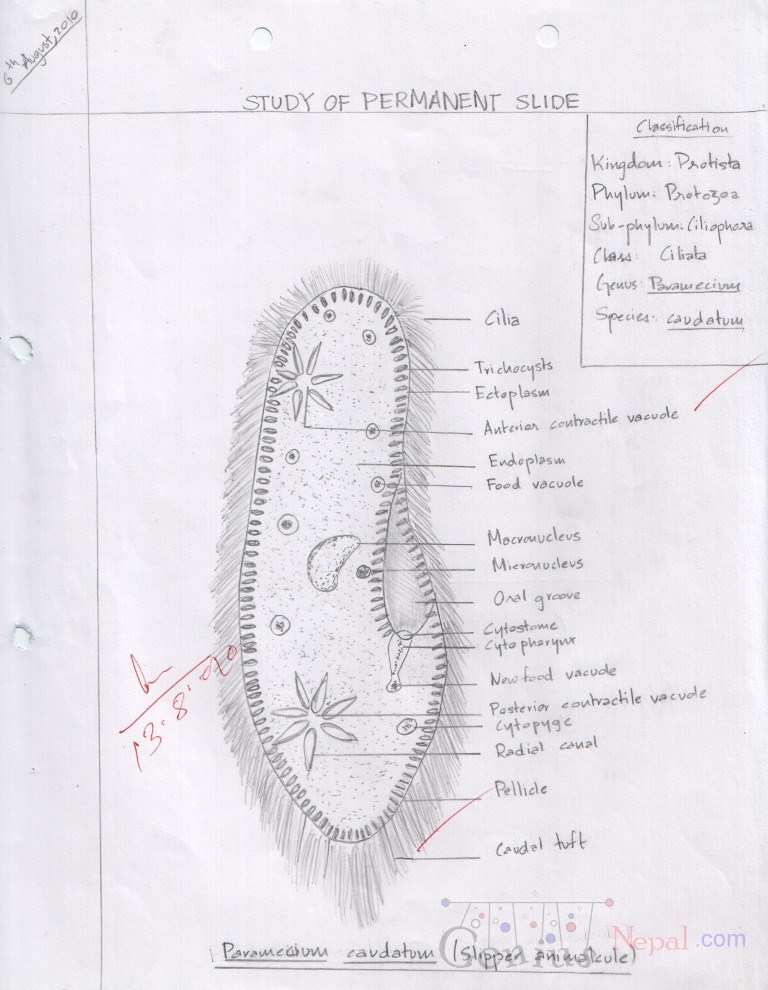 6th August, 2010
STUDY OF PERMANENT SLIDE
Classification
Kingdom: Protista
Phylum: Protozoa
Sub-phylum: Ciliophora
Class: Ciliata
Genus: Paramecium
Species: caudatum
Cilia
Trichocysts
Ectoplasm
Anterior contractile vacuole
Endoplasm
Food vacuole
Macronucleus
Micronucleus
Oral groove
Cytostome
Cytopharynx
New food vacuole
Posterior contractile vacuole
Cytopyge
Radial canal
Pellicle
Caudal tuft
13.8.010
Paramecium caudatum (Slipper animalcule)
Genius Nepal.com